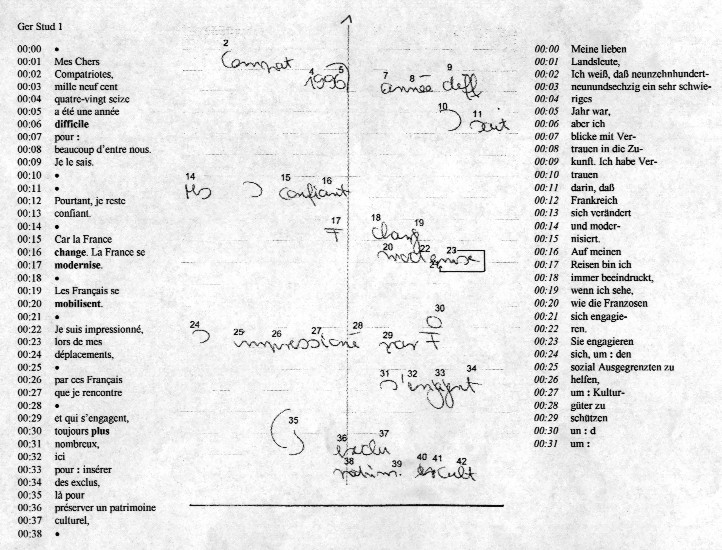 Ger Stud 1
00:00 •
00:01 Mes Chers
00:02 Compatriotes,
00:03 mille neuf cent
00:04 quatre-vingt seize
00:05 a été une année
00:06 difficile
00:07 pour :
00:08 beaucoup d'entre nous.
00:09 Je le sais.
00:10 •
00:11 •
00:12 Pourtant, je reste
00:13 confiant.
00:14 •
00:15 Car la France
00:16 change. La France se
00:17 modernise.
00:18 •
00:19 Les Français se
00:20 mobilisent.
00:21 •
00:22 Je suis impressionné,
00:23 lors de mes
00:24 déplacements,
00:25 •
00:26 par ces Français
00:27 que je rencontre
00:28 •
00:29 et qui s'engagent,
00:30 toujours plus
00:31 nombreux,
00:32 ici
00:33 pour : insérer
00:34 des exclus,
00:35 là pour
00:36 préserver un patrimoine
00:37 culturel,
00:38 •
1
2
Compat
4 5
1996
7 8 9
année diff
10 11
suit
14 15 16
confiant
17
F
18 19
chang
20 22 23
24 25 26 27 28 29 30
impressioné par F
31 32 33 34
s'engagent
35
36 37
exclu
38 39 40 41 42
cult
00:00 Meine lieben
00:01 Landsleute,
00:02 Ich weiß, daß neunzehnhundert-
00:03 neunundsechzig ein sehr schwie-
00:04 riges
00:05 Jahr war,
00:06 aber ich
00:07 blicke mit Ver-
00:08 trauen in die Zu-
00:09 kunft. Ich habe Ver-
00:10 trauen
00:11 darin, daß
00:12 Frankreich
00:13 sich verändert
00:14 und moder-
00:15 nisiert.
00:16 Auf meinen
00:17 Reisen bin ich
00:18 immer beeindruckt,
00:19 wenn ich sehe,
00:20 wie die Franzosen
00:21 sich engagie-
00:22 ren.
00:23 Sie engagieren
00:24 sich, um : den
00:25 sozial Ausgegrenzten zu
00:26 helfen,
00:27 um : Kultur-
00:28 güter zu
00:29 schützen
00:30 un : d
00:31 um :